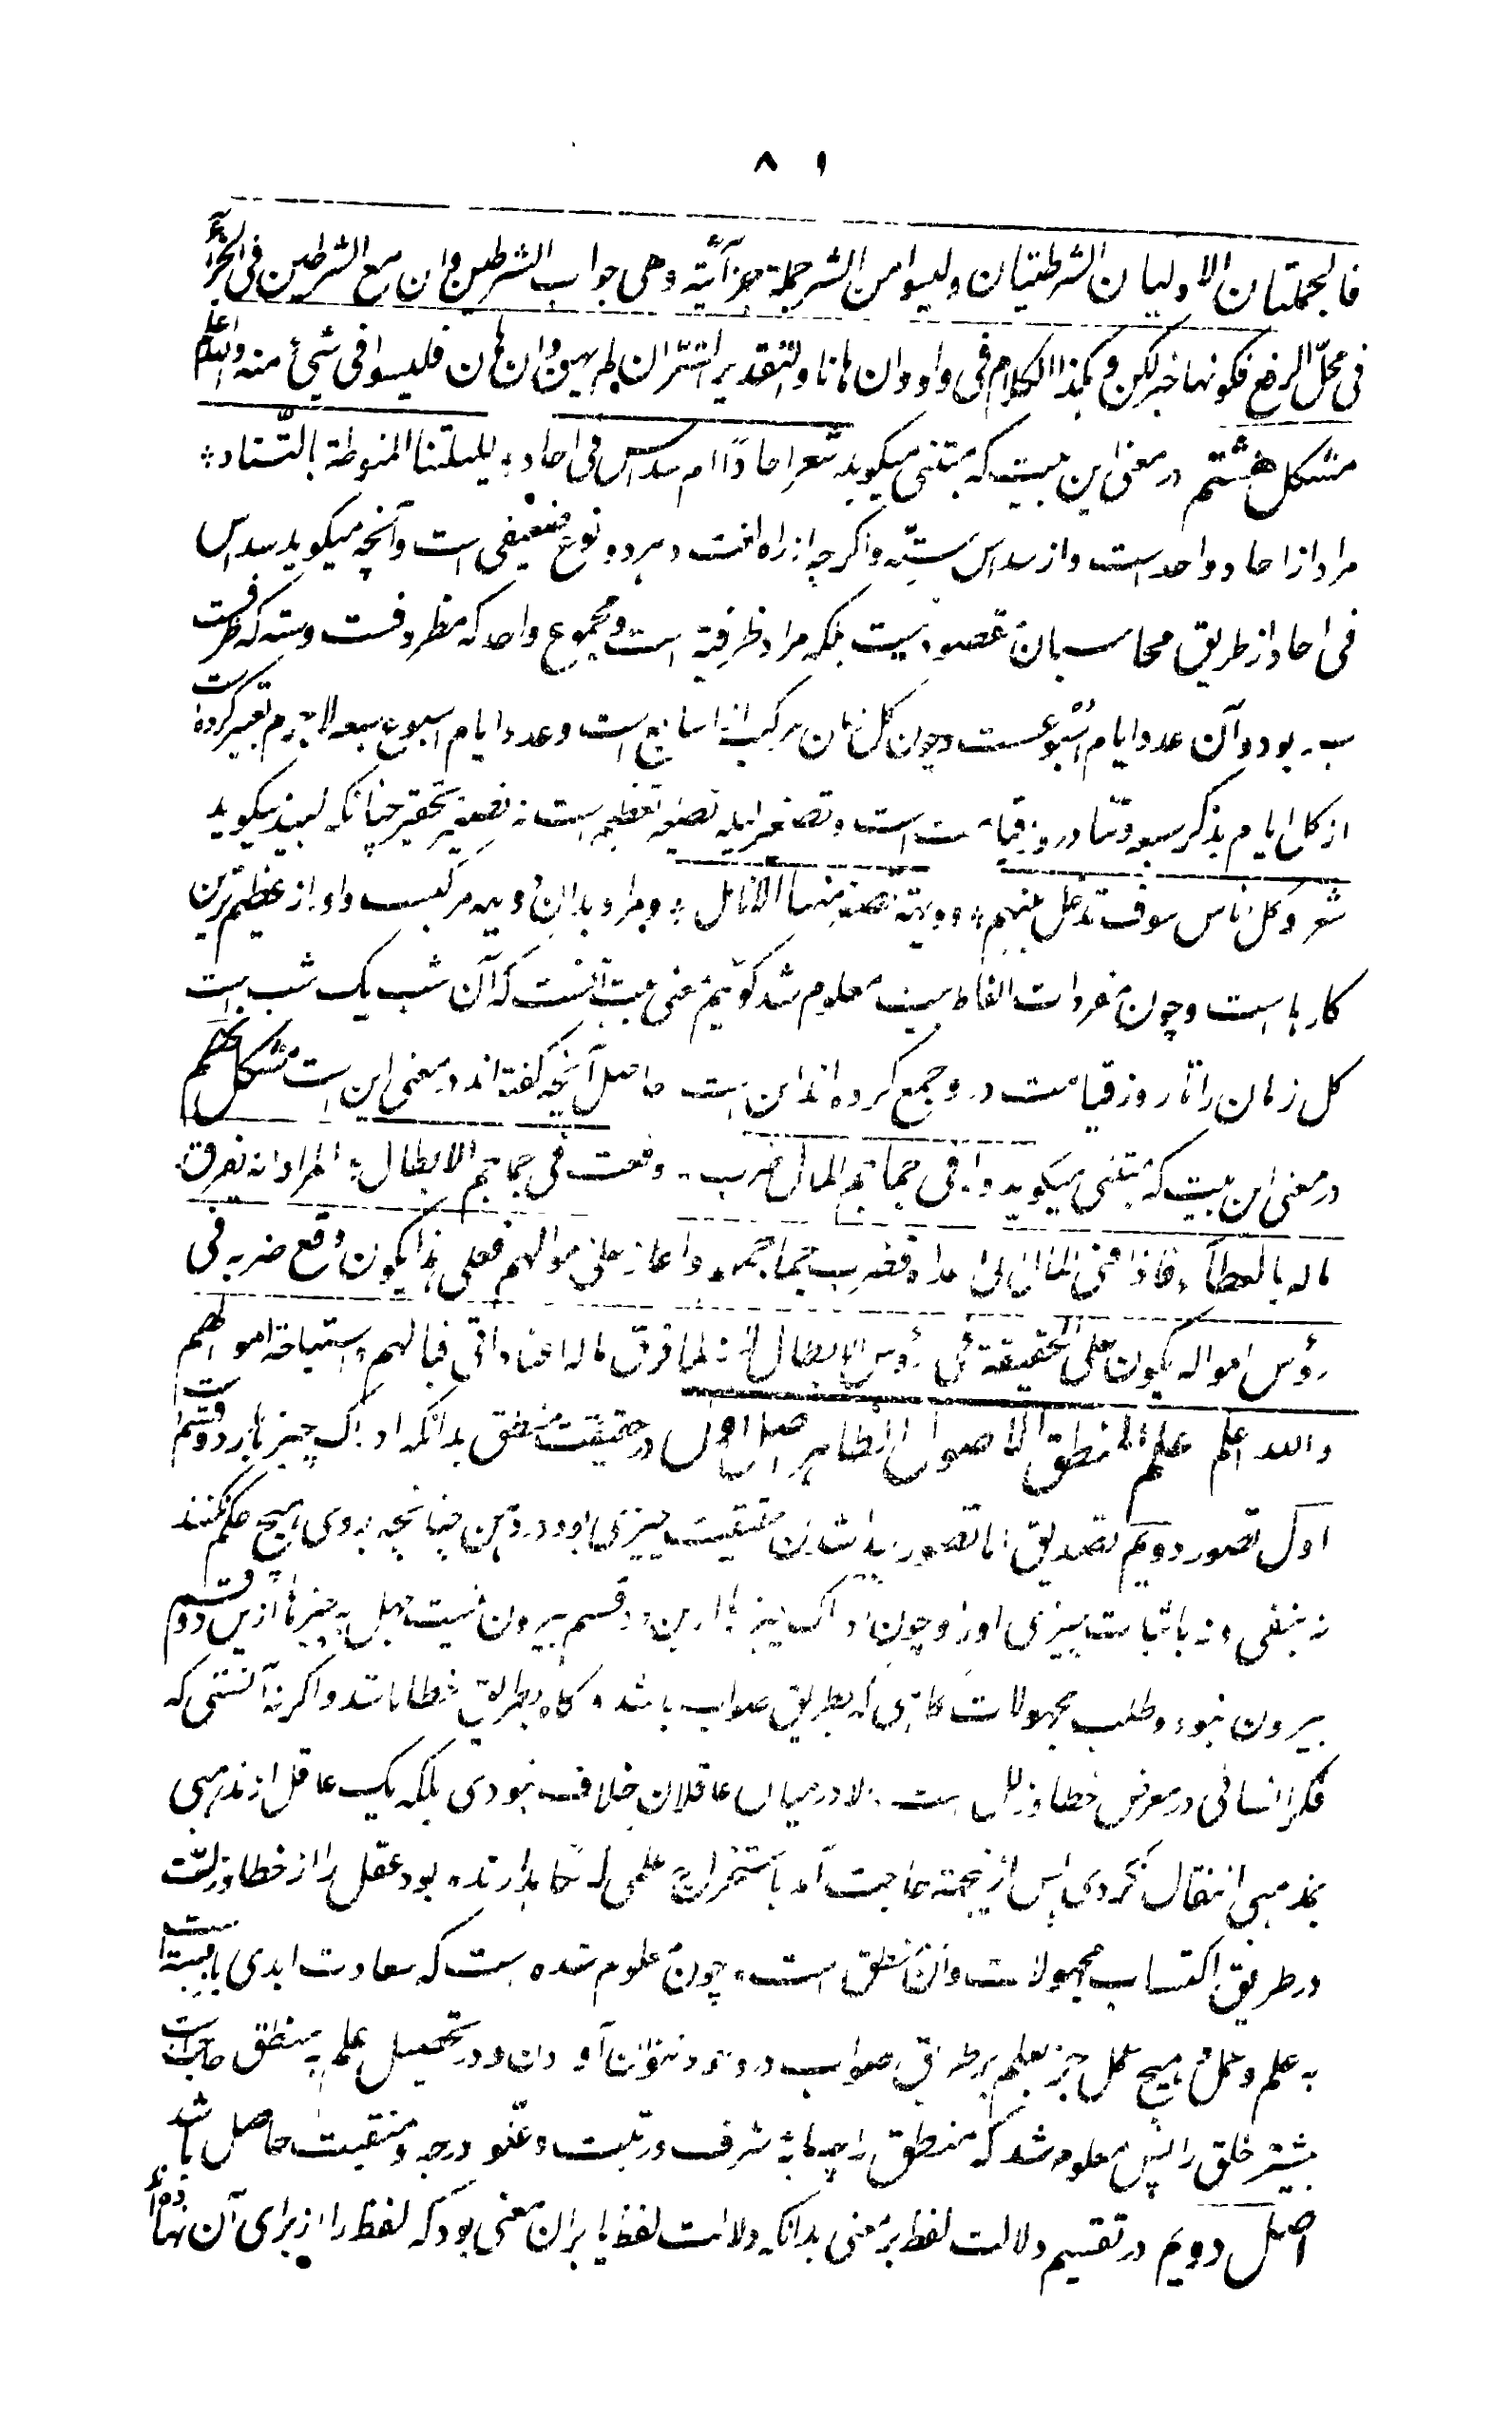 ٨١
فالجملتان الاولیان الشرطیتان ولیسوا من الشر جملة جزآئیّة وهی جواب الشرطین وان مع الشرطین فی الجزآء
فی محلّ الرفع فکونها خبر لکن وکذا الکلام فی وان هانا والتقدیر اشترّان لم یهن وان هان فلیسوا فی شیٔ منه والله اعلم
مشکل هشتم در معنی این بیت که متنبی میکوید شعر احادٌ ام سداس فی احاد ؞ لییلتنا المنوطة بالتّناد ؞
مراد از احاد واحد است و از سداس ستّه واکرچه از راه لغت هر دو نوع ضعیفی است وآنچه میکوید سداس
فی احاد از طریق محاسبان مقصود نیست بلکه مراد ظرفیة است و مجموع واحد که مظروفست وسته که ظرفست
بود وآن عدد ایام اسبوعست وچون کل زمان مرکب از اسابیع است وعدد ایام اسبوع سبعه لاجرم تعبیر کرده است
از کل ایام بذکر سبعه وتناد روز قیامت است وتصغیر لیله تصغیر تعظیم است نه تصغیر تحقیر چنانکه لبید میکوید
شعر وکل اناس سوف تدخل بینهم ؞ دویهیة تصفرّ منها الانامل ؞ ومراد بدان دویهه مرکست واو از عظیم ترین
کارها است وچون مفردات الفاظ بیت معلوم شد کوئیم معنی بیت آنست که آن شب یک شب است
کل زمان را تا روز قیامت درو جمع کرده اند این است حاصل آنچه کفته اند در معنی این است مشکل نهم
در معنی این بیت که متنبی میکوید واذا فی جماجم المال ضرب ؞ وقعت فی جماجم الابطال ؞ المراد انه یفرق
ماله بالعطآء فاذا فنی المال اتی اعداه فضرب جماجمهم واغار علی اموالهم فعلی هذا یکون وقع ضربه فی
رؤس امواله یکون علی الحقیقة فی رؤس الابطال لانه لما فرق ماله اعاد اتی قتالهم واستباحة اموالهم
والله اعلم علم المنطق الاصول الظاهر اصل اول در حقیقت منطق بدانکه ادراک چیزها بر دو قسم است
اول تصور دویم تصدیق اما تصور شناختن حقیقت چیزی بود در ذهن چنانچه بروی هیچ حکم نکنند
نه بنفی و نه باثبات چیزی او را وچون ادراک چیزها ازین دو قسم بیرون نیست جهل به چیزها ازین دو قسم
بیرون نبود و طلب مجهولات کاهی که بطریق صواب باشد و کاه بطریق خطا باشد واکر نه آنستی که
فکر انسانی در معرض خطا و زلل است والا در میان عاقلان خلاف نبودی بلکه یک عاقل از مذهبی
بمذهبی انتقال نکردی پس ازین جهة حاجت آمد باستخراج علمی که نکاهدارنده بود عقل را از خطا و زلت
در طریق اکتساب مجهولات وآن منطق است وچون معلوم شده است که سعادت ابدی یا بسته است
به علم و عمل و هیچ عمل جز بعلم بر طریق صواب در وجود نتوان آوردن و در تحصیل علم به منطق حاجت است
بیشتر خلق را پس معلوم شد که منطق را چه مایه شرف و رتبت و علّو درجه و منقبت حاصل باشد
اصل دویم در تقسیم دلالت لفظ بر معنی بدانکه دلالت لفظ یا بر آن معنی بود که لفظ را از برای آن نهاده اند